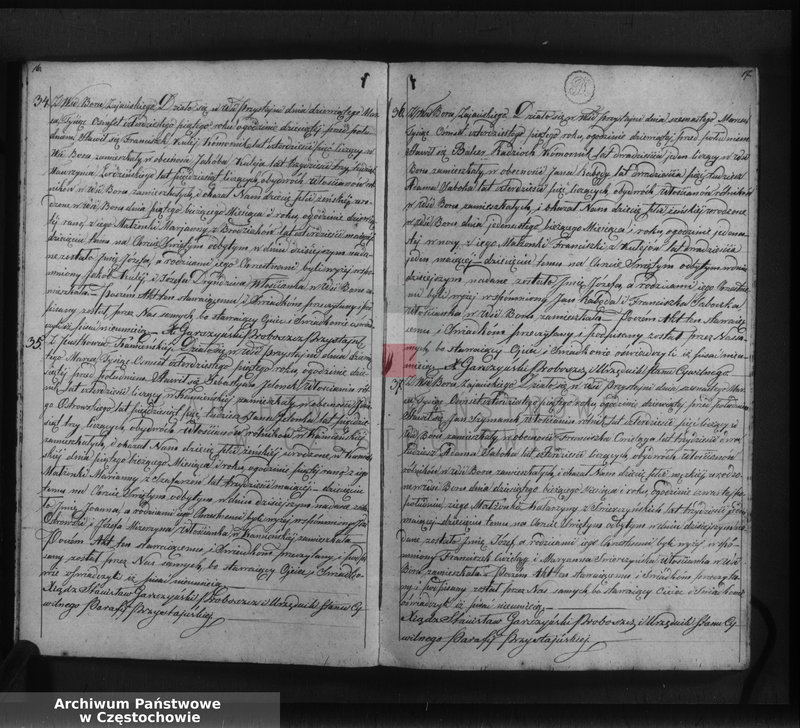 16.
34. Z Wsi Boru Zajacińskiego. Działo się w Wsi Przystajni dnia dziewiątego Mar-
ca Tysiąc Osmset czterdziestego piątego roku, o godzinie dziewiątej przed połu-
dniem, Stawił się Franciszek Kulej Komornik lat czterdzieści pięć liczący w
Wsi Boru zamieszkały w obecności Jakoba Kuleja lat trzydzieści trzy tudzież
Wawrzyna lat pięćdziesiąt liczących, obydwóch Włościanów rol-
ników w Wsi Boru zamieszkałych, i okazał Nam dziecię płci żeńskiej uro-
dzone w Wsi Boru dnia piątego bieżącego Miesiąca i roku, o godzinie
rano, z jego Małżonki Maryanny z lat czterdzieści mającej
dziecięciu temu na Chrzcie Świętym odbytym w dniu dzisiejszym nada-
ne zostało Imię Józefa, a rodzicami jego Chrzestnemi byli wyżej wspo-
mniony Jakob Kulej i Józefa Włościanka w Wsi Boru za-
mieszkała. Poczem Akt ten stawającemu i Świadkom przeczytany i pod-
pisany został przez Nas samych, bo stawający Ojciec i Świadkowie oświad-
czyli iż pisać nieumieją. X. Garczyński Proboszcz Przystajni
35. Z Działo się w Wsi Przystajni dnia
tego Marca Tysiąc Osmset czterdziestego piątego roku, o godzinie dzie-
wiątej przed południem, Stawił się Sebastyan Jelonek Włościanin rol-
nik lat czterdzieści liczący w Kamińsku zamieszkały w obecności
Ostrowskiego lat pięćdziesiąt tudzież Jelonka lat pięćdzie-
siąt trzy liczących, obydwóch Włościanów rolników w
zamieszkałych, i okazał Nam dziecię płci żeńskiej urodzone w
dnia piątego bieżącego Miesiąca i roku, o godzinie piątej rano, z jego
Małżonki Maryanny z lat trzydzieści mającej, dziecięciu
temu na Chrzcie Świętym odbytym w dniu dzisiejszym nadane zosta-
ło Imię Joanna, a rodzicami jego Chrzestnemi byli wyżej wspomniony
Ostrowski i Józefa Włościanka w zamieszkała
Poczem Akt ten stawającemu i Świadkom przeczytany i podpi-
sany został przez Nas samych, bo stawający Ojciec i Świadko-
wie oświadczyli iż pisać nieumieją
Xiądz Stanisław Garczyński Proboszcz i Urzędnik Stanu Cy-
wilnego Parafij Przystajńskiej
17.
36. Z Wsi Boru Zajacińskiego. Działo się w Wsi Przystajni dnia szesnastego Marca
Tysiąc Osmset czterdziestego piątego roku, o godzinie dziewiątej przed południem
Stawił się Balcer Kadzioch Komornik lat dwadzieścia jeden liczący w Wsi
Boru zamieszkały, w obecności Jana Kałędy lat dwadzieścia pięć tudzież
Adama Saboka lat czterdzieści pięć liczących, obydwóch Włościanów rolników
w Wsi Boru zamieszkałych, i okazał Nam dziecię płci żeńskiej urodzone
w Wsi Boru dnia jedenastego bieżącego Miesiąca i roku, o godzinie jedenas-
tej w nocy, z jego Małżonki Franciszki z Kulejów lat dwadzieścia
jeden mającej, dziecięciu temu na Chrzcie Świętym odbytym w dniu
dzisiejszym nadane zostało Imię Józefa, a rodzicami jego Chrzestne-
mi byli wyżej wspomniony Jan Kałęda i Franciszka Saboka
Włościanka w Wsi Boru zamieszkała. Poczem Akt ten stawają-
cemu i Świadkom przeczytany i podpisany został przez Nas sa-
mych, bo stawający Ojciec i Świadkowie oświadczyli iż pisać nieu-
mieją. X. Garczyński Proboszcz, Urzędnik Stanu Cywilnego
37. Z Wsi Boru Zajacińskiego. Działo się w Wsi Przystajni dnia szesnastego Mar-
ca Tysiąc Osmset czterdziestego piątego roku, o godzinie dziewiątej przed południem
Stawił się Jan Szymanek Włościanin rolnik lat czterdzieści pięć liczący w
Wsi Boru zamieszkały, w obecności Franciszka Cieślaga lat trzydzieści
tudzież Adama Saboka lat czterdzieści liczących, obydwóch Włościanów
rolników w Wsi Boru zamieszkałych, i okazał Nam dziecię płci męskiej urodzo-
ne w Wsi Boru dnia dziesiątego bieżącego Miesiąca i roku, o godzinie czwartej po
południu, z jego Małżonki Katarzyny z lat trzydzieści
mającej, dziecięciu temu na Chrzcie Świętym odbytym w dniu dzisiejszym na-
dane zostało Imię Józef, a rodzicami jego Chrzestnemi byli wyżej wspo-
mniony Franciszek Cieśląg i Maryanna Włościanka w Wsi
Boru zamieszkała. Poczem Akt ten stawającemu i Świadkom przeczyta-
ny i podpisany został przez Nas samych, bo stawający Ojciec i Świadkowie
oświadczyli iż pisać nieumieją.
Xiądz Stanisław Garczyński Proboszcz, i Urzędnik Stanu Cy-
wilnego Parafij Przystajńskiej
Archiwum Państwowe
w Częstochowie